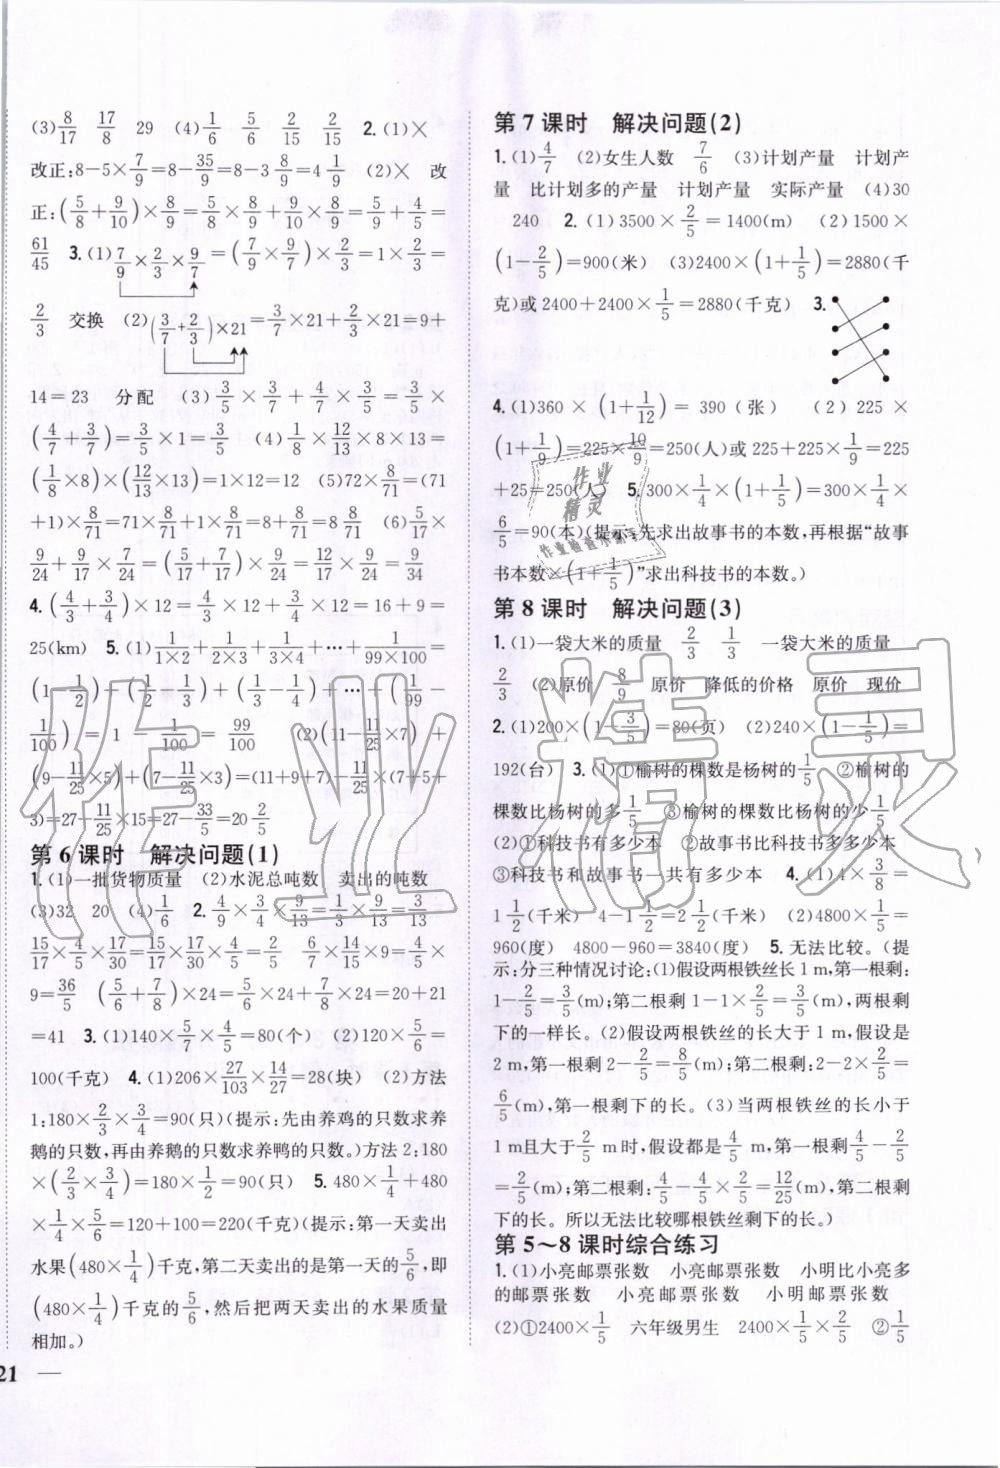 (3)8/17 17/8 29 (4)1/6 5/6 2/15 2/15 2.(1)×
改正:8-5×7/9=8-35/9=8-3 8/9=4 1/9 (2)× 改
正:(5/8+9/10)×8/9=5/8×8/9+9/10×8/9=5/9+4/5=
61/45 3.(1)7/9×2/3×9/7=(7/9×9/7)×2/3=1×2/3=
2/3 交换 (2)(3/7+2/3)×21=3/7×21+2/3×21=9+
14=23 分配 (3)3/5×3/7+4/7×3/5=3/5×
(4/7+3/7)=3/5×1=3/5 (4)1/8×12/13×8×13=
(1/8×8)×(12/13×13)=1×12=12 (5)72×8/71=(71
+1)×8/71=71×8/71+1×8/71=8+8/71=8 8/71 (6)5/17×
9/24+9/17×7/24=(5/17+7/17)×9/24=12/17×9/24=9/34
4.(4/3+3/4)×12=4/3×12+3/4×12=16+9=
25(km) 5.(1)1/1×2+1/2×3+1/3×4+…+1/99×100=
(1-1/2)+(1/2-1/3)+(1/3-1/4)+…+(1/99-
1/100)=1-1/100=99/100 (2)(11-11/25×7)+
(9-11/25×5)+(7-11/25×3)=(11+9+7)-11/25×(7+5+
3)=27-11/25×15=27-33/5=20 2/5
第6课时 解决问题(1)
1.(1)一批货物质量 (2)水泥总吨数 卖出的吨数
(3)32 20 (4)1/6 2.4/9×3/4×9/13=1/3×9/13=3/13
15/17×4/5×17/30=15/17×17/30×4/5=2/5 6/7×14/15×9=4/5×
9=36/5 (5/6+7/8)×24=5/6×24+7/8×24=20+21
=41 3.(1)140×5/7×4/5=80(个) (2)120×5/6=
100(千克) 4.(1)206×27/103×14/27=28(块) (2)方法
1:180×2/3×3/4=90(只)(提示:先由养鸡的只数求养
鹅的只数,再由养鹅的只数求养鸭的只数。)方法2:180
×(2/3×3/4)=180×1/2=90(只) 5.480×1/4+480
×1/4×5/6=120+100=220(千克)(提示:第一天卖出
水果(480×1/4)千克,第二天卖出的是第一天的5/6,即
(480×1/4)千克的5/6,然后把两天卖出的水果质量
相加。)
21
第7课时 解决问题(2)
1.(1)4/7 (2)女生人数 7/6 (3)计划产量 计划产
量 比计划多的产量 计划产量 实际产量 (4)30
240 2.(1)3500×2/5=1400(m) (2)1500×
(1-2/5)=900(米) (3)2400×(1+1/5)=2880(千
克)或2400+2400×1/5=2880(千克) 3.
4.(1)360×(1+1/12)=390(张) (2)225×
(1+1/9)=225×10/9=250(人)或225+225×1/9=225
+25=250(人) 5.300×1/4×(1+1/5)=300×1/4×
6/5=90(本)(提示:先求出故事书的本数,再根据“故事
书本数×(1+1/5)”求出科技书的本数。)
第8课时 解决问题(3)
1.(1)一袋大米的质量 2/3 1/3 一袋大米的质量
2/3 (2)原价 8/9 原价 降低的价格 原价 现价
2.(1)200×(1-3/5)=80(页) (2)240×(1-1/5)=
192(台) 3.(1)①榆树的棵数是杨树的1/5 ②榆树的
棵数比杨树的多1/5 ③榆树的棵数比杨树的少1/5
(2)①科技书有多少本 ②故事书比科技书多多少本
③科技书和故事书一共有多少本 4.(1)4×3/8=
1 1/2(千米) 4-1 1/2=2 1/2(千米) (2)4800×1/5=
960(度) 4800-960=3840(度) 5.无法比较。(提
示:分三种情况讨论:(1)假设两根铁丝长1m,第一根剩:
1-2/5=3/5(m);第二根剩1-1×2/5=3/5(m),两根剩
下的一样长。(2)假设两根铁丝的长大于1m,假设是
2m,第一根剩2-2/5=8/5(m);第二根剩:2-2×2/5=
6/5(m),第一根剩下的长。(3)当两根铁丝的长小于
1m且大于2/5m时,假设都是4/5m,第一根剩:4/5-2/5
=2/5(m);第二根剩:4/5-4/5×2/5=12/25(m),第二根剩
下的长。所以无法比较哪根铁丝剩下的长。)
第5~8课时综合练习
1.(1)小亮邮票张数 小亮邮票张数 小明比小亮多
的邮票张数 小亮邮票张数 小明邮票张数
(2)①2400×1/5 六年级男生 2400×1/5×2/5 ②1/5
作业精灵
作业
精灵